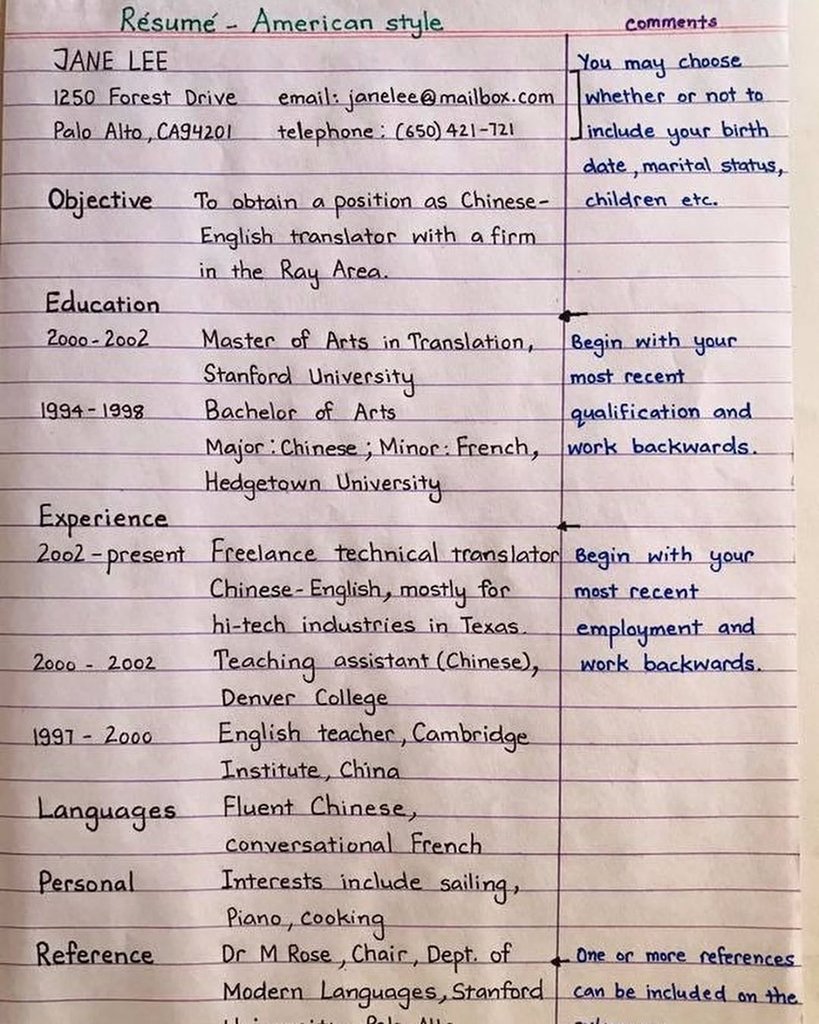 Résumé - American style
comments
JANE LEE
You may choose
1250 Forest Drive email: janelee@mailbox.com
whether or not to
Palo Alto, CA94201 telephone: (650) 421-721
include your birth
date, marital status,
Objective To obtain a position as Chinese-
children etc.
English translator with a firm
in the Ray Area.
Education
2000-2002 Master of Arts in Translation,
Begin with your
Stanford University
most recent
1994-1998 Bachelor of Arts
qualification and
Major: Chinese; Minor: French,
work backwards.
Hedgetown University
Experience
2002-present Freelance technical translator
Begin with your
Chinese-English, mostly for
most recent
hi-tech industries in Texas.
employment and
2000 - 2002 Teaching assistant (Chinese),
work backwards.
Denver College
1997 - 2000 English teacher, Cambridge
Institute, China
Languages Fluent Chinese,
conversational French
Personal Interests include sailing,
Piano, cooking
Reference Dr M Rose, Chair, Dept. of
One or more references
Modern Languages, Stanford
can be included on the